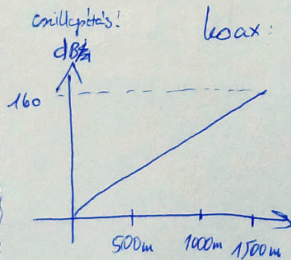 csillapítás!
koax:
dB
160
500m 1000m 1500m